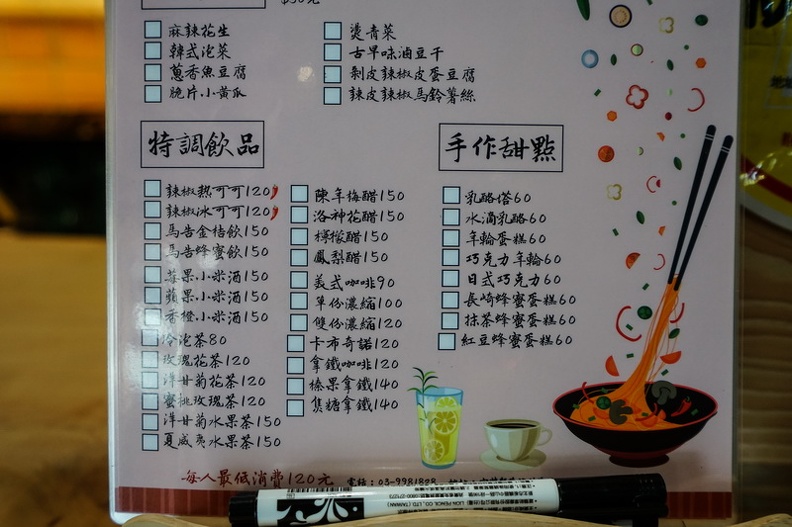 50元
麻辣花生
韓式泡菜
蔥香魚豆腐
脆片小黃瓜
燙青菜
古早味滷豆干
剝皮辣椒皮蛋豆腐
辣皮辣椒馬鈴薯絲
特調飲品
辣椒熱可可120
辣椒冰可可120
馬告金桔飲150
馬告蜂蜜飲150
莓果小米酒150
蘋果小米酒150
香橙小米酒150
冷泡茶80
玫瑰花茶120
洋甘菊花茶120
蜜桃玫瑰茶120
洋甘菊水果茶150
夏威夷水果茶150
陳年梅醋150
洛神花醋150
檸檬醋150
鳳梨醋150
美式咖啡90
單份濃縮100
雙份濃縮120
卡布奇諾120
拿鐵咖啡120
榛果拿鐵140
焦糖拿鐵140
手作甜點
乳酪塔60
水滴乳酪60
年輪蛋糕60
巧克力年輪60
日式巧克力60
長崎蜂蜜蛋糕60
抹茶蜂蜜蛋糕60
紅豆蜂蜜蛋糕60
每人最低消費120元
電話：03-9981828